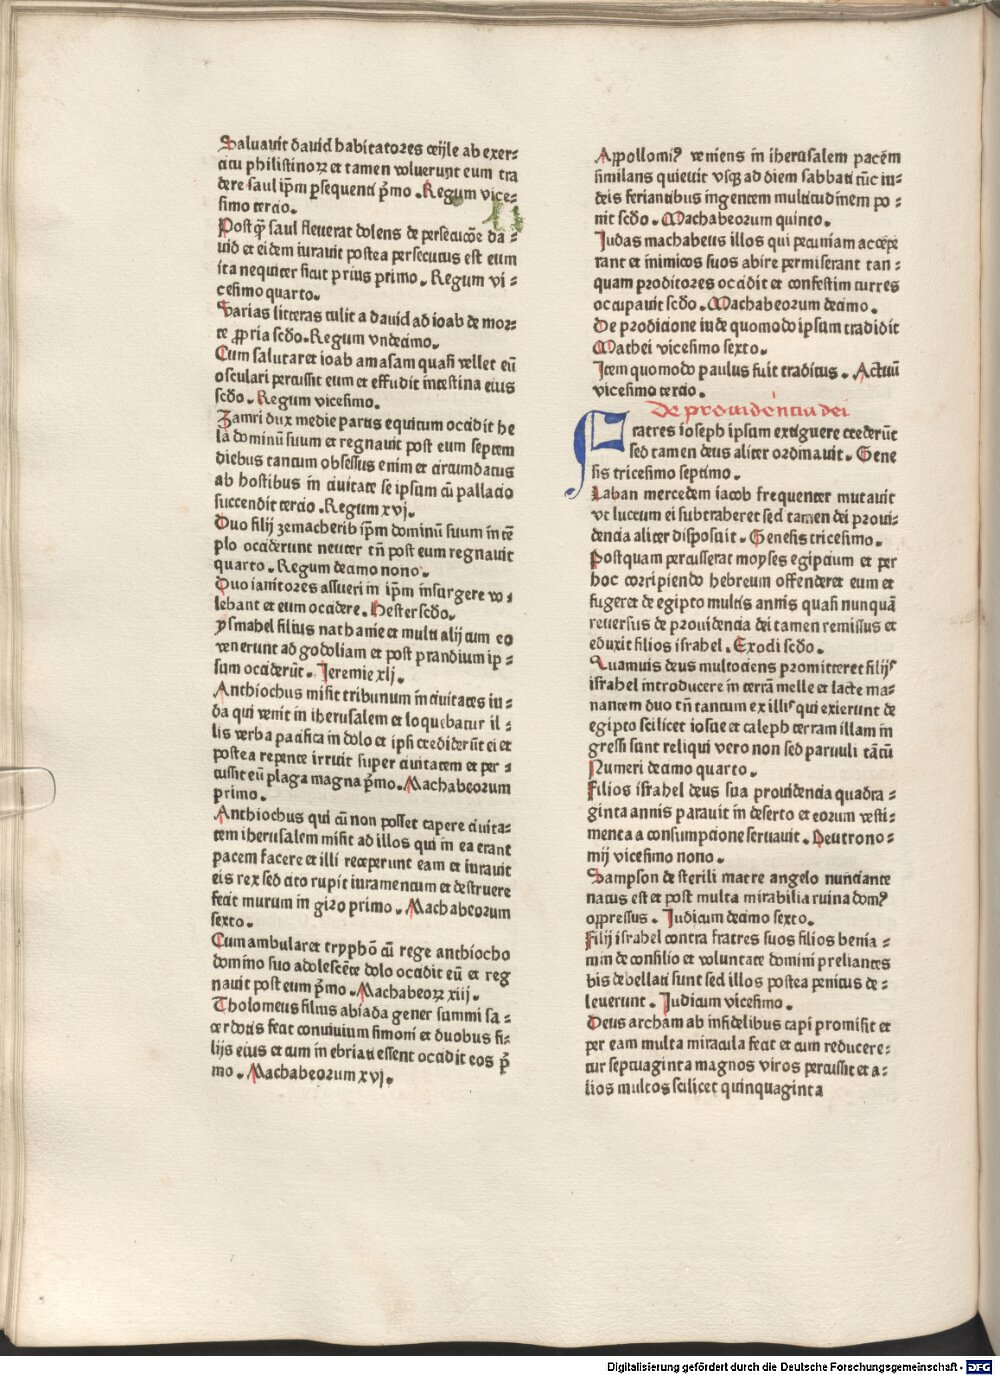 Saluauit dauid habitatores ceijle ab exer-
citu philistinoꝝ et tamen voluerunt eum tra
dere saul ip̄m ꝑsequenti p̄mo . Regum vice-
simo tercio.
Postq̄ saul fleuerat dolens de persecucōe da-
uid et eidem iurauit postea persecutus est eum
ita nequiter sicut prius primo . Regum vi-
cesimo quarto.
Varias litteras tulit a dauid ad ioab de mor-
te ꝓpria scd̄o. Regum vndecimo.
Cum salutaret ioab amasam quasi vellet eū
osculari percussit eum et effudit intestina eius
scd̄o . Regum vicesimo.
Zamri dux medie partis equitum occidit he
la dominū suum et regnauit post eum septem
diebus tantum obsessus enim et circumdatus
ab hostibus in ciuitate se ipsum cū pallacio
succendit tercio . Regum xvj.
Duo filij zemacherib ip̄m dominū suum in tē
plo occiderunt neuter tn̄ post eum regnauit
quarto . Regum decimo nono.
Duo ianitores assueri in ip̄m insurgere vo-
lebant et eum occidere . Hester scd̄o.
ysmahel filius nathanie et multi alij cum eo
venerunt ad godoliam et post prandium ip-
sum occiderūt . Jeremie xlj.
Anthiochus misit tribunum in ciuitates iu-
da qui venit in iherusalem et loquebatur il-
lis verba pacifica in dolo et ipsi crediderūt ei et
postea repente irruit super ciuitatem et per-
cussit eū plaga magna p̄mo . Machabeorum
primo .
Anthiochus qui cū non posset capere ciuita-
tem iherusalem misit ad illos qui in ea erant
pacem facere et illi receperunt eam et iurauit
eis rex sed cito rupit iuramentum et destruere
fecit murum in giro primo . Machabeorum
sexto.
Cum ambularet tryphō cū rege anthiocho
domino suo adolescēte dolo occidit eū et reg
nauit post eum p̄mo . Machabeoꝝ xiij.
Tholomeus filius abiada gener summi sa-
cerdotis fecit conuiuium simoni et duobus fi-
lijs eius et cum inebriati essent occidit eos p̄
mo . Machabeorum xvj.
Appollomiꝰ veniens in iherusalem pacēm
similans quieuit vsqꝫ ad diem sabbati tūc iu-
deis feriantibus ingentem multitudinem po-
nit scd̄o . Machabeorum quinto.
Judas machabeus illos qui pecuniam accepe
rant et inimicos suos abire permiserant tan-
quam proditores occidit et confestim turres
occupauit scd̄o . Machabeorum decimo .
De prodicione iude quomodo ipsum tradidit
Mathei vicesimo sexto.
Item quomodo paulus fuit traditus . Actuū
vicesimo tercio .
De prouidencia dei
Fratres ioseph ipsum extiguere crederūt
sed tamen deus aliter ordinauit . Gene
sis tricesimo septimo .
Laban mercedem iacob frequenter mutauit
vt lucrum ei subtraheret sed tamen dei proui-
dencia aliter disposuit . Genesis tricesimo .
Postquam percusserat moyses egipcium et per
hoc corripiendo hebreum offenderet eum et
fugeret de egipto multis annis quasi nunquā
reuersus de prouidencia dei tamen remissus et
eduxit filios israhel . Exodi scd̄o .
Quamuis deus multociens promitteret filijs
israhel introducere in terrā melle et lacte ma-
nantem duo tn̄ tantum ex illis qui exierunt de
egipto scilicet iosue et caleph terram illam in
gressi sunt reliqui vero non sed paruuli tātū
Numeri decimo quarto .
Filios israhel deus sua prouidencia quadra-
ginta annis parauit in deserto et eorum vesti-
menta a consumpcione seruauit . Deutrono-
mij vicesimo nono .
Sampson de sterili matre angelo nunciante
natus est et post multa mirabilia ruina domꝰ
oppressus . Judicum decimo sexto.
Filij israhel contra fratres suos filios benia-
min de consilio et voluntate domini preliantes
bis debellati sunt sed illos postea penitus de-
leuerunt . Judicum vicesimo .
Deus archam ab infidelibus capi promisit et
per eam multa miracula fecit et cum reducere-
tur septuaginta magnos viros percussit et a-
lios multos scilicet quinquaginta
Digitalisierung gefördert durch die Deutsche Forschungsgemeinschaft - DFG